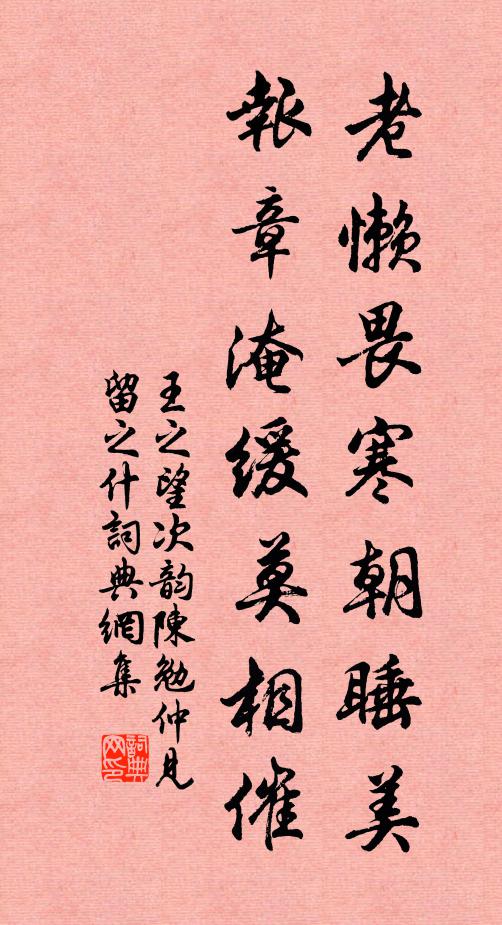 老懒畏寒朝睡美
報章淹緩莫相催
王之望次韵陳勉仲見
留之什詞典網集
詞典网印